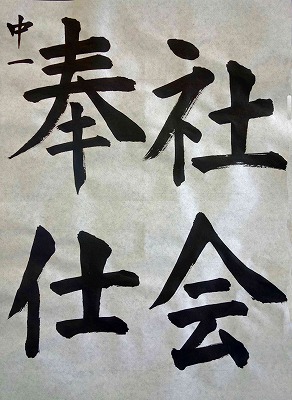 社会
奉仕
中一